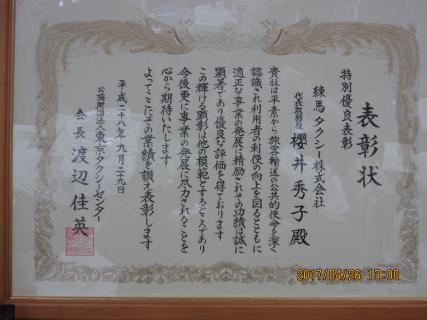 表彰状
特別優良表彰
練馬タクシー株式会社
代表取締役 櫻井秀子 殿
貴社は平素から旅客輸送の公共的使命を深く
認識され利用者の利便の向上を図るとともに
適正な事業の発展に精励されその功績は誠に
顕著であり優良な評価を得ております
この輝ける顕彰は他の模範とするところであり
今後更に事業の発展に尽力されることを
心から期待いたします
よってここにその業績を讃え表彰します
平成二十八年九月二十九日
公益財団法人東京タクシーセンター
会長 渡辺佳英
2017/04/26 13:00